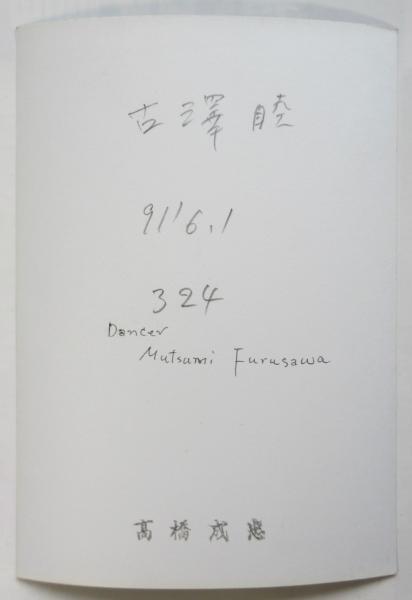 古澤睦
91'6.1
324
Dancer
Mutsumi Furusawa
高橋成忠